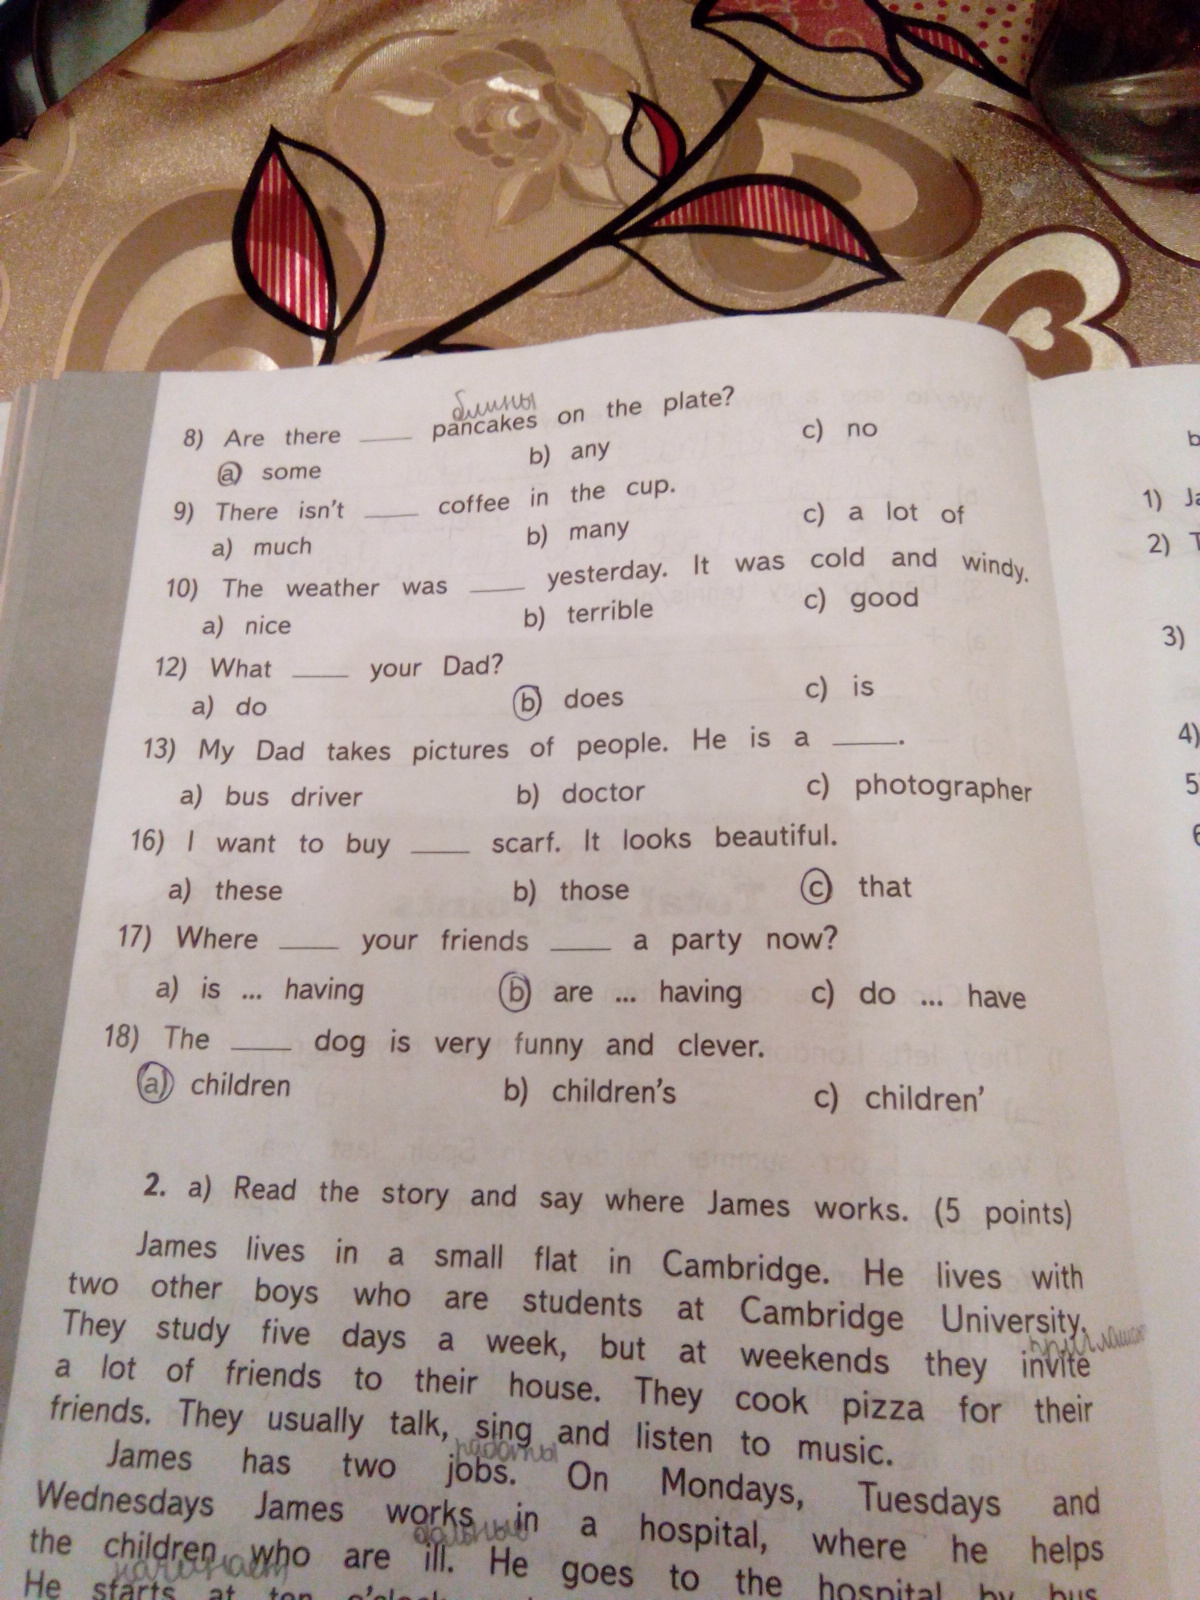 блины
8) Are there ____ pancakes on the plate?
a) some b) any c) no
9) There isn't ____ coffee in the cup.
a) much b) many c) a lot of
10) The weather was ____ yesterday. It was cold and windy.
a) nice b) terrible c) good
12) What ____ your Dad?
a) do b) does c) is
13) My Dad takes pictures of people. He is a ____.
a) bus driver b) doctor c) photographer
16) I want to buy ____ scarf. It looks beautiful.
a) these b) those c) that
17) Where ____ your friends ____ a party now?
a) is ... having b) are ... having c) do ... have
18) The ____ dog is very funny and clever.
a) children b) children's c) children'
2. a) Read the story and say where James works. (5 points)
James lives in a small flat in Cambridge. He lives with
two other boys who are students at Cambridge University.
They study five days a week, but at weekends they invite
a lot of friends to their house. They cook pizza for their
friends. They usually talk, sing and listen to music.
James has two jobs. On Mondays, Tuesdays and
Wednesdays James works in a hospital, where he helps
the children who are ill. He goes to the hospital by bus.
He starts at ten o'clock
1) Ja
2) T
3)
4)
5
6